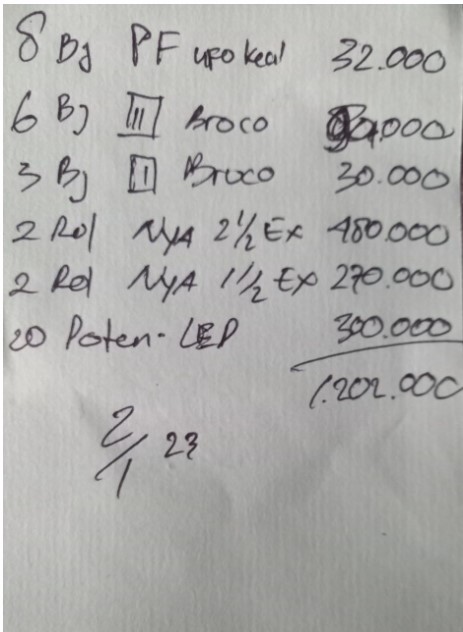 8 Bj PF ufo kecil 32.000
6 Bj II Broco 90.000
3 Bj I Broco 30.000
2 Rol NYA 2 1/2 Ex 480.000
2 Rol NYA 1 1/2 Ex 270.000
20 Poten-LED 300.000
1.202.000
2/1 23